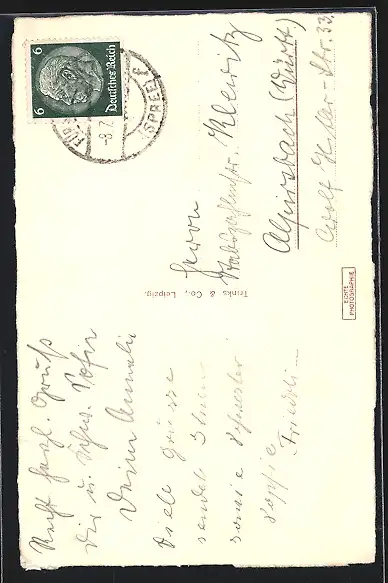 Recht herzl. Gruß
Dir u. Schw. Sofie
Deine Annali
Viele Grüsse
sendet Ihnen
sowie Schwester
Sophie
6
Deutsches Reich
6
(SPREE)
-8.7
Herrn
Klewitz
Alpirsbach (Württ)
Adolf Hitler-Str. 33.
Trinks & Co., Leipzig.
ECHTE
PHOTOGRAPHIE